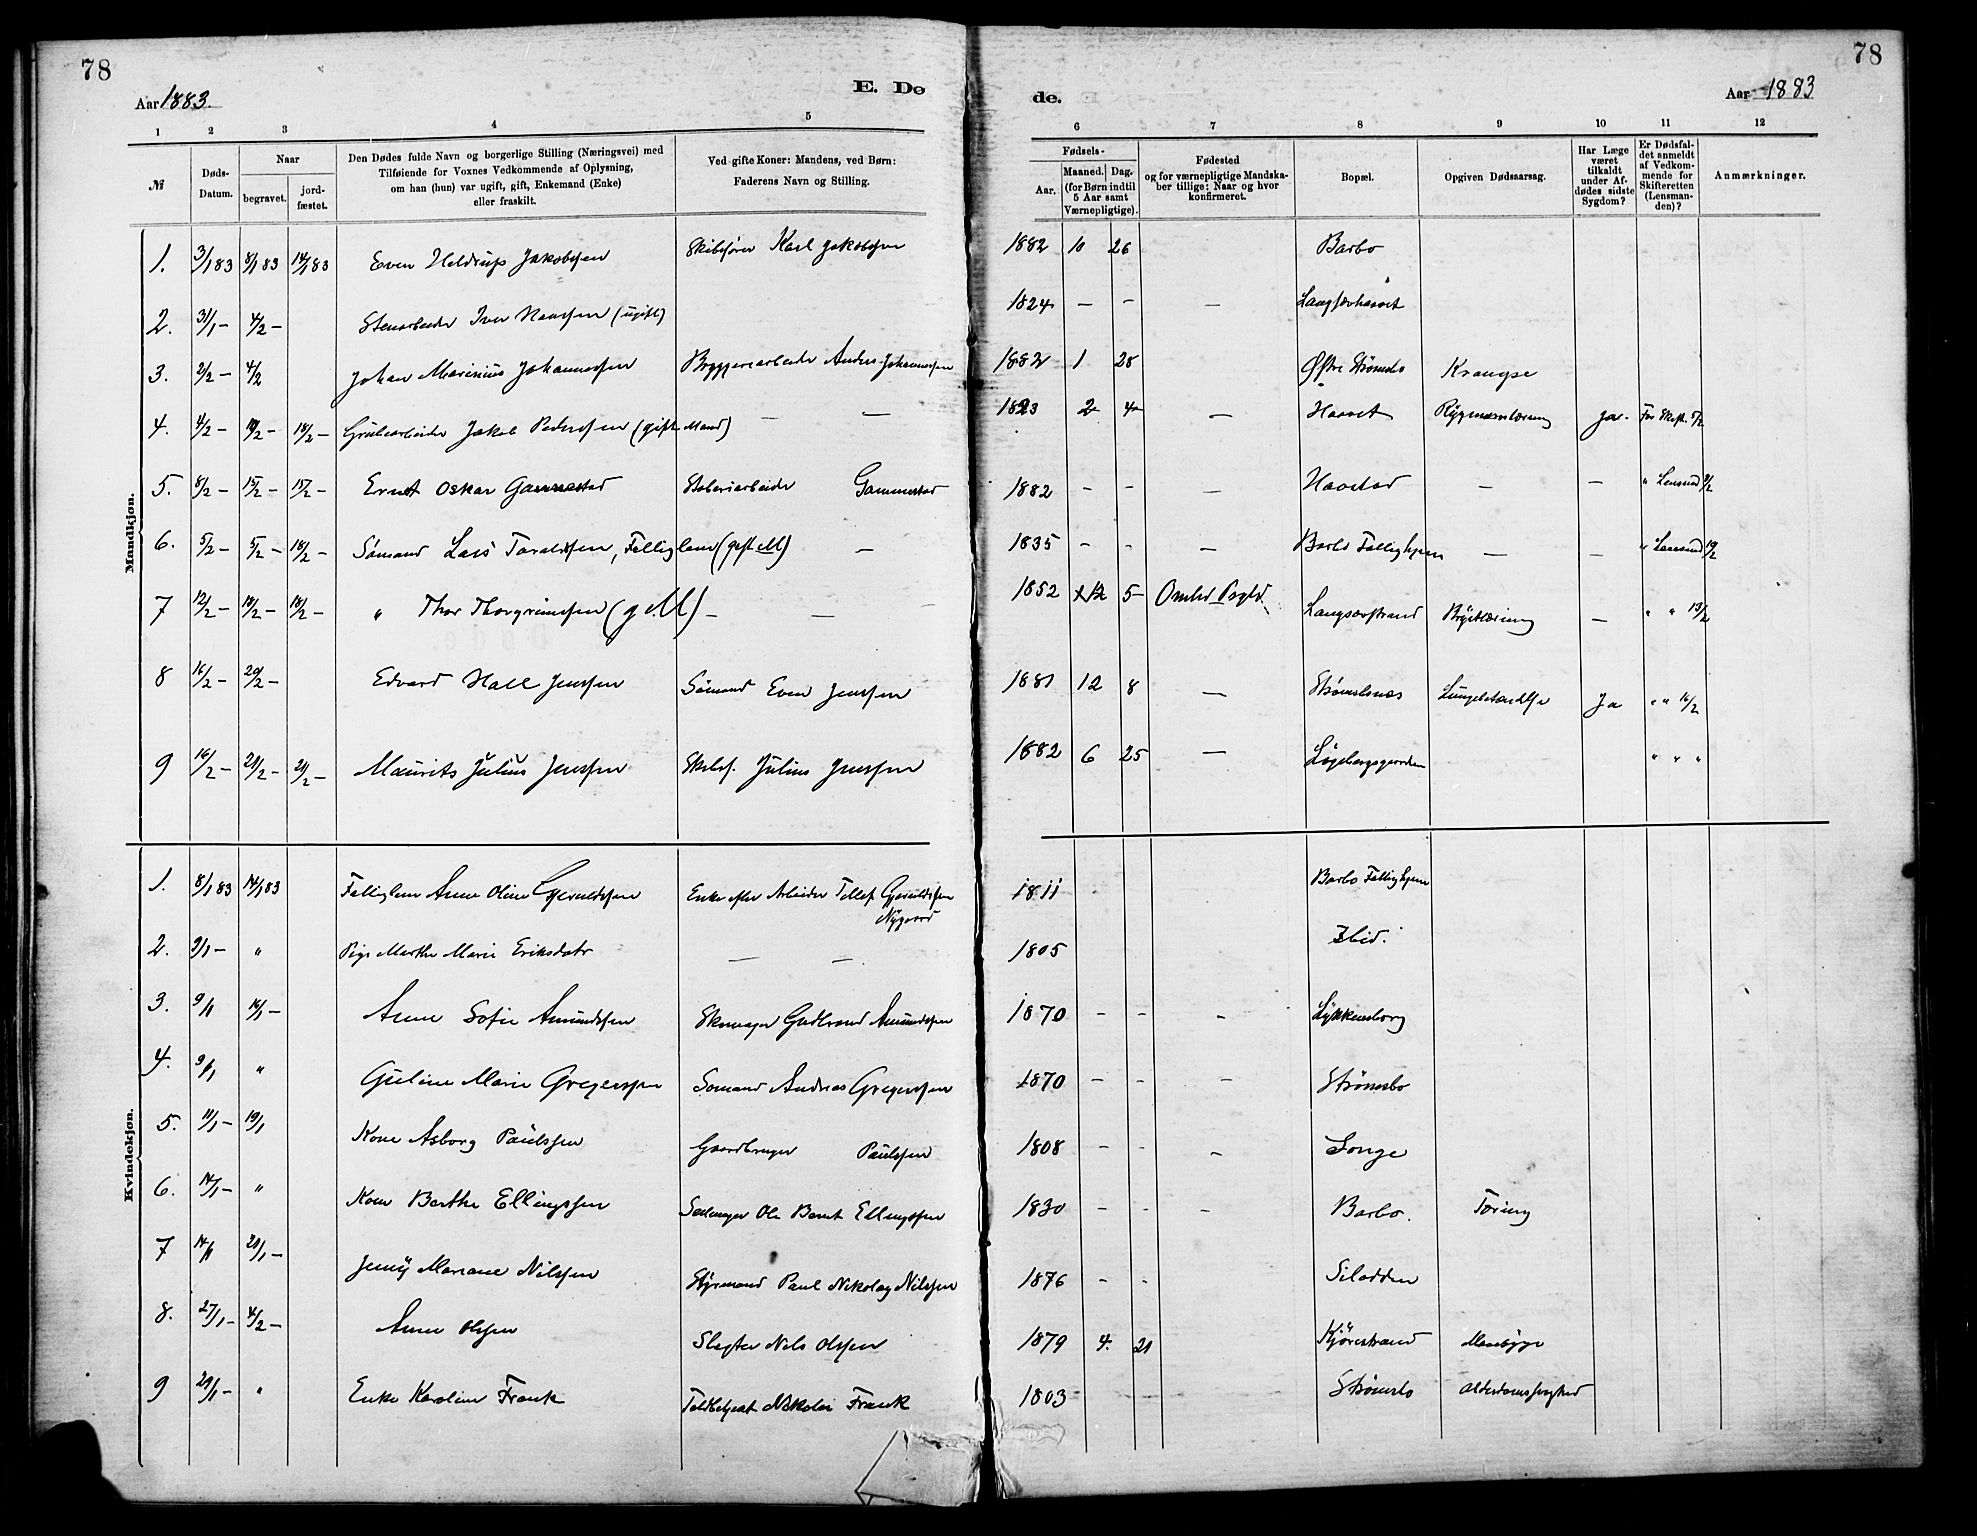 78
78
Aar 1883.
E. Dø
de.
Aar 1883
1 2 3 4 5 6 7 8 9 10 11 12
№
Døds-Datum.
Naar
begravet.
jord-fæstet.
Den Dødes fulde Navn og borgerlige Stilling (Næringsvei) med
Tilføiende for Voxnes Vedkommende af Oplysning,
om han (hun) var ugift, gift, Enkemand (Enke)
eller fraskilt.
Ved gifte Koner: Mandens, ved Børn:
Faderens Navn og Stilling.
Fødsels-
Aar.
Maaned. Dag.
(for Børn indtil
5 Aar samt
Værnepligtige).
Fødested
og for værnepligtige Mandska-
ber tillige: Naar og hvor
konfirmeret.
Bopæl.
Opgiven Dødsaarsag.
Har Læge
været
tilkaldt
under Af-
dødes sidste
Sygdom?
Er Dødsfal-
det anmeldt
af Vedkom-
mende for
Skifteretten
(Lensman-
den)?
Anmærkninger.
Mandkjøn.
1. 3/1 83 8/1 83 14/1 83 Even Heldrup Jakobssen Skibsfører Karl Jakobssen 1882 10 26 — Barbo
2. 31/1 – 4/2 – Stenarbeider Iver Hanssen (ugift) 1824 — – — Langsævhaavet
3. 2/2 – 4/2 Johan Marinius Johannessen Bryggeriarbeider Anders Johannessen 1882 1 28 Østre Strømsbo Krampe
4. 4/2 – 10/2 – 18/2 – Grubearbeider Jakob Pederssen (gift Mand) — — 1823 2 4 — Haavet Rygmarvstæring ja. For Skift. 5/2
5. 8/2 – 15/2 – 15/2 – Ernst Oskar Gammestad Gammestad 1882 – – — Haavstad — — " Lensmd 9/2
6. 5/2 – 5/2 – 18/2 – Sømand Lars Taraldsen, Fattiglem (gift M) — 1835 – – — Barbo Fattighjem — — " Lensmd 10/2
7 12/2 – 18/2 – 18/2 – " Thor Thorgrimssen (g. M) – — 1852 12 5 Omlid Prgld. Langsævstrand Brysttæring — " " 13/2
8 16/2 – 20/2 – Edvard Hall Jenssen Sømand Even Jenssen 1881 12 8 — Strømsbunæs Lungebetændelse Ja " " 16/2
9 16/2 – 21/2 – 21/2 – Maurits Julius Jenssen Skibsf. Julius Jenssen 1882 6 25 — " " "
Kvindekjøn.
1. 8/1 83 14/1 83 Fattiglem Anne Oline Gjeruldssen Enke efter Arbeider Tellef Gjeruldssen
Nygaard 1811 Barbo Fattighjem
2. 9/1 – " Pige Marthe Marie Eriksdatr — — 1805 Ibid.
3. 9/1 16/1 – Anne Sofie Amundssen Skomager Gudbrand Amundssen 1870 – – – Lykkensborg
4. 9/1 " Guline Marie Gregerssen Sømand Andreas Gregerssen 1870 – – – Strømsbo
5. 11/1 – 19/1 Kone Asborg Paulssen Gaardbruger Paulssen 1808 – – – Songe
6. 14/1 – " Kone Berthe Ellingssen Ole Bernt Ellingssen 1830 – – – Barbo. Tæring
7 14/1 21/1 – Jenny Mariane Nilssen Styrmand Paul Nikolay Nilssen 1876 – – Silodden
8. 27/1 – 4/2 – Anne Olssen Slagter Nils Olssen 1879 4. 21 Kjørrestrand
9 29/1 – " Enke Karoline Frank Toldbetjent Nikolai Frank 1803 Strømsbo Alderdomssvaghed